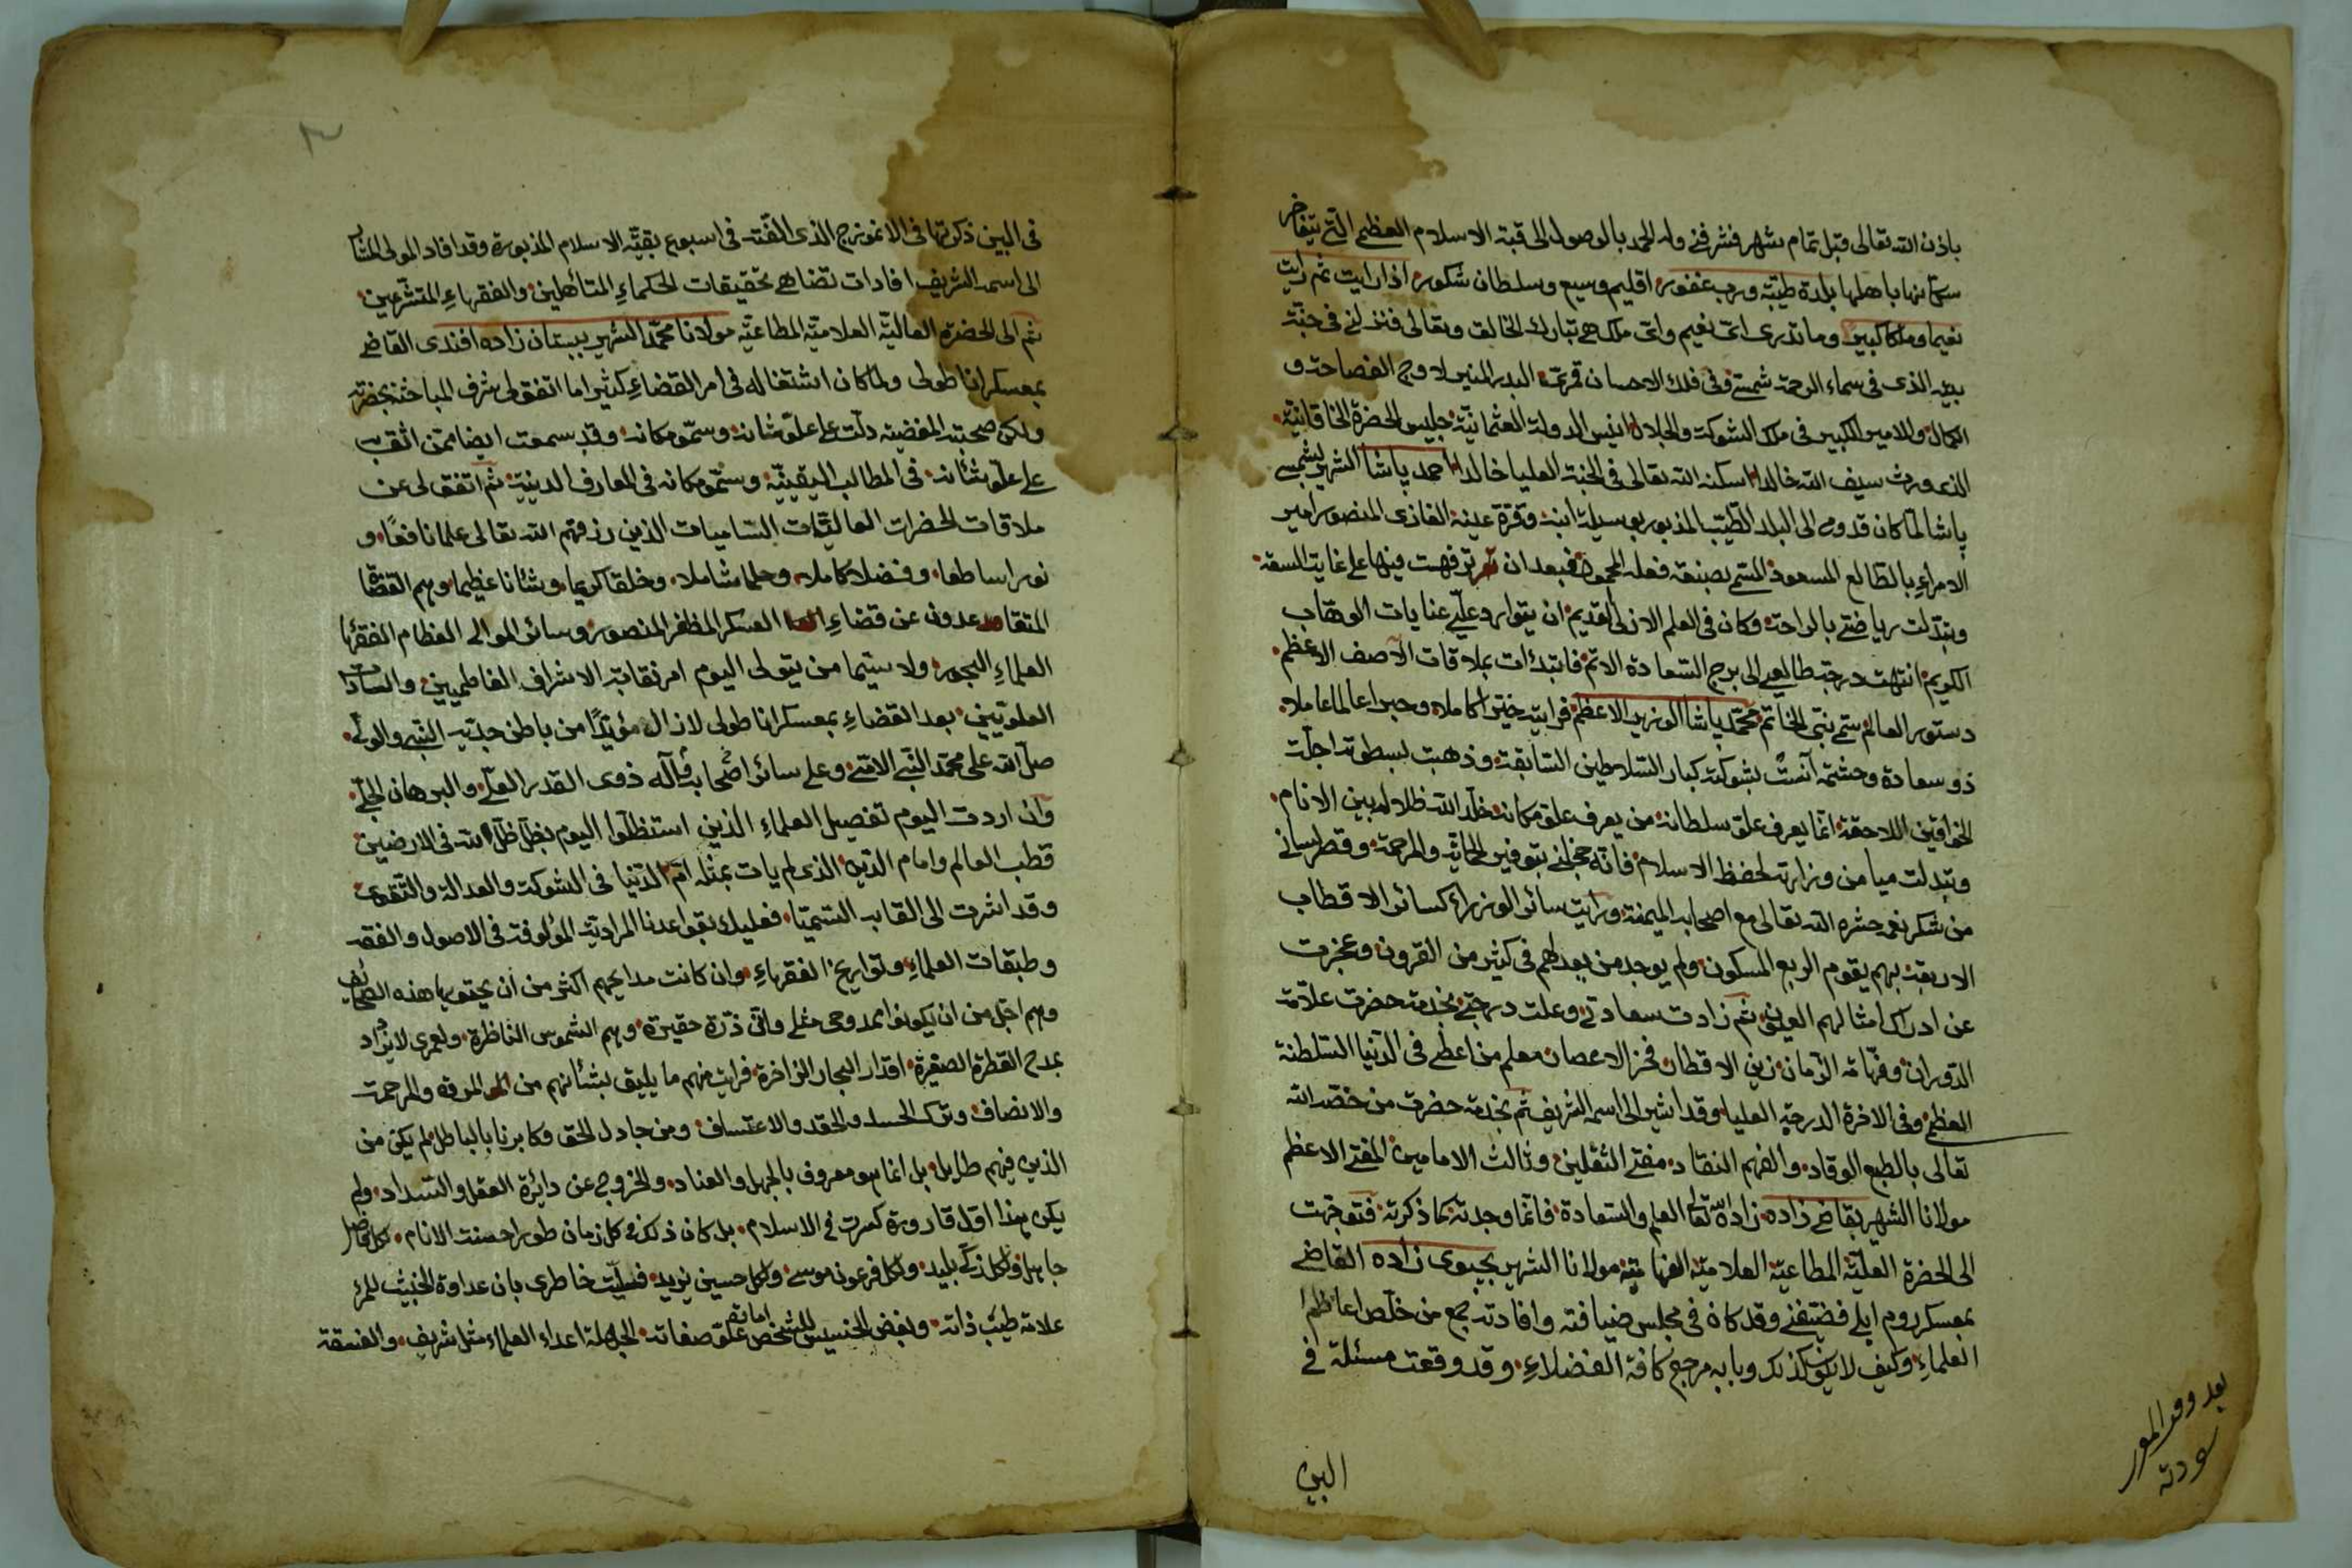 باذن الله تعالى قبل تمام شهر فشرفني وله الحمد بالوصول الى قبة الاسلام العظيم التي يتفاخر
سكانها باهلها بلدة طيبة ورب غفور اقليم وسيع وسلطان شكور اذا رايت ثم رايت
نعيما وملكا كبيرا وما تدرى اى نعيم واى ملك هي تبارك الخالق وتعالى فنزلني في جنة
بيته الذى في سماء الرحمة شمسه وفي فلك الاحسان قمره البدر المنير لاوج الفصاحة و
الكمال والامير الكبير في ملك الشوكة والجلال انيس الدولة العثمانية جليس الحضرة الخاقانية
الذى ورث سيف الله خالدا اسكنه الله تعالى في الجنة العليا خالدا احمد پاشا الشهير بشمسي
پاشا لما كان قدومي الى البلد الطيب المذبور بوسيلة ابنه وقرة عينه الغازى المنصور امير
الامراء بالطالع المسعود المسمى بصنعه فعله المحمود فبعد ان ترفهت فيها على غاية السعة
وتبدلت رياضتي بالراحة وكان في العلم الازلى القديم ان يتوارد علي عنايات الوهاب
الكريم انتهت درجة طالعي الى برج السعادة الاتم فابتدات بملاقات الآصف الاعظم
دستور العالم سمى نبي الخاتم محمد پاشا الوزير الاعظم فرايته خيرا كاملا وحبرا عالما عاملا
ذو سعادة وحشمة آنست بشوكته كبار السلاطين السابقة وذهبت بسطوته اجلة
الخواقين اللاحقة انما يعرف علو سلطانه من يعرف علو مكانه خلد الله ظلاله بين الانام
وتبدلت ميامن وزارته لحفظ الاسلام فانه خجلني بتوفير الحماية والمرحمة وقطر لساني
من شكر نعمه حشره الله تعالى مع اصحاب الميمنة ورايت سائر الوزراء كسائر الاقطاب
الاربعة بهم يقوم الربع المسكون ولم يوجد من بعدلهم في كثير من القرون وعجزت
عن ادراك امثالهم العيون ثم زادت سعادتي وعلت درجتي بخدمة حضرت علامة
الدوران وفهامة الزمان زين الاقطار فخر الاعصار معلم من اعطى في الدنيا السلطنة
العظمى وفي الاخرة الدرجة العليا وقد اشير الى اسمه الشريف ثم بخدمة حضرت من خصه الله
تعالى بالطبع الوقاد والفهم النقاد مفتي الثقلين وثالث الامامين المفتي الاعظم
مولانا الشهير بقاضي زاده زاده الله تعالى العلم والسعادة فانما وجدته كما ذكرته فتوجهت
الى الحضرة العلية المطاعية العلامية الفهامية مولانا الشهير بجوى زاده القاضي
بعسكر روم ايلي فضيفني وقد كان في مجلس ضيافته وافادته جمع من خلص اعاظم
العلماء وكيف لا يكون كذلك وبابه مرجع كافة الفضلاء وقد وقعت مسئلة في
البين
في البين ذكرتها في الانموزج الذى الفته في اسبوع بقية الاسلام المذبورة وقد افاد المولى المشار
الى اسمه الشريف افادات تضاهي تحقيقات الحكماء المتألهين والفقهاء المتشرعين
ثم الى الحضرة العالية العلامية المطاعية مولانا محمد الشهير ببستان زاده افندى القاضي
بعسكر اناطولى ولما كان اشتغاله في امر القضاء كثيرا ما اتفق لى شرف المباحثة بحضرته
ولكن صحبته المغضية دلت على علو شانه وسمو مكانه وقد سمعت ايضا ممن اثق به
على علو شانه في المطالب اليقينية وسمو مكانه في المعارف الدينية ثم اتفق لى عن
ملاقات الحضرات العاليات الساميات الذين رزقهم الله تعالى علما نافعا و
نورا ساطعا وفضلا كاملا وحلما شاملا وخلقا كريما وشانا عظيما وهم القضاة
المتقاعدون عن قضاء العسكر المظفر المنصور وسائر الموالى العظام الفقهاء
العلماء البحور ولا سيما من يتولى اليوم امر نقابة الاشراف الفاطميين والسادات
العلويين بعد القضاء بعسكر اناطولى لازال مؤيدا من باطن جديه النبي والولي
صلى الله على محمد النبي الامي وعلى سائر اصحابه وآله ذوى القدر العلي والبرهان الجلي
وان اردت اليوم تفصيل العلماء الذين استظلوا اليوم بظل ظل الله في الارضين
قطب العالم وامام الدين الذى لم يات بمثله ام الدنيا في الشوكة والعدالة والتقوى
وقد اشرت الى القابه السميا فعليك بقواعدنا المرادية المؤلوفة في الاصول والفقه
وطبقات العلماء وتواريخ الفقهاء وان كانت مدايحهم اكثر من ان يحتويها هذه الصحائف
وهم اجل من ان يكونوا ممدوحى مثلى وانى ذرة حقيرة وهم الشموس الناظرة ولعمرى لا يزداد
بمدح القطرة الصغيرة اقدار البحار الزاخرة فرايت منهم ما يليق بشأنهم من المروة والمرحمة
والانصاف وترك الحسد والحقد والاعتساف ومن جادل الحق وكابرنا بالباطل لم يكن من
الذين فيهم طايل بل انما هو معروف بالجهل والعناد والخروج عن دائرة العقل والسداد ولم
يكن هذا اول قارورة كسرت في الاسلام بل كان ذلك في كل زمان طورا حسنت الانام لكل فاضل
جاهل ولكل ذكي بليد ولكل فرعون موسى ولكل حسين يزيد فسليت خاطرى بان عداوة الخبيث للمرء
علامة طيب ذاته وبغض الخسيس للشخص اماتة علو صفاته الجهلة اعداء العلماء مثل شريف والفسقة